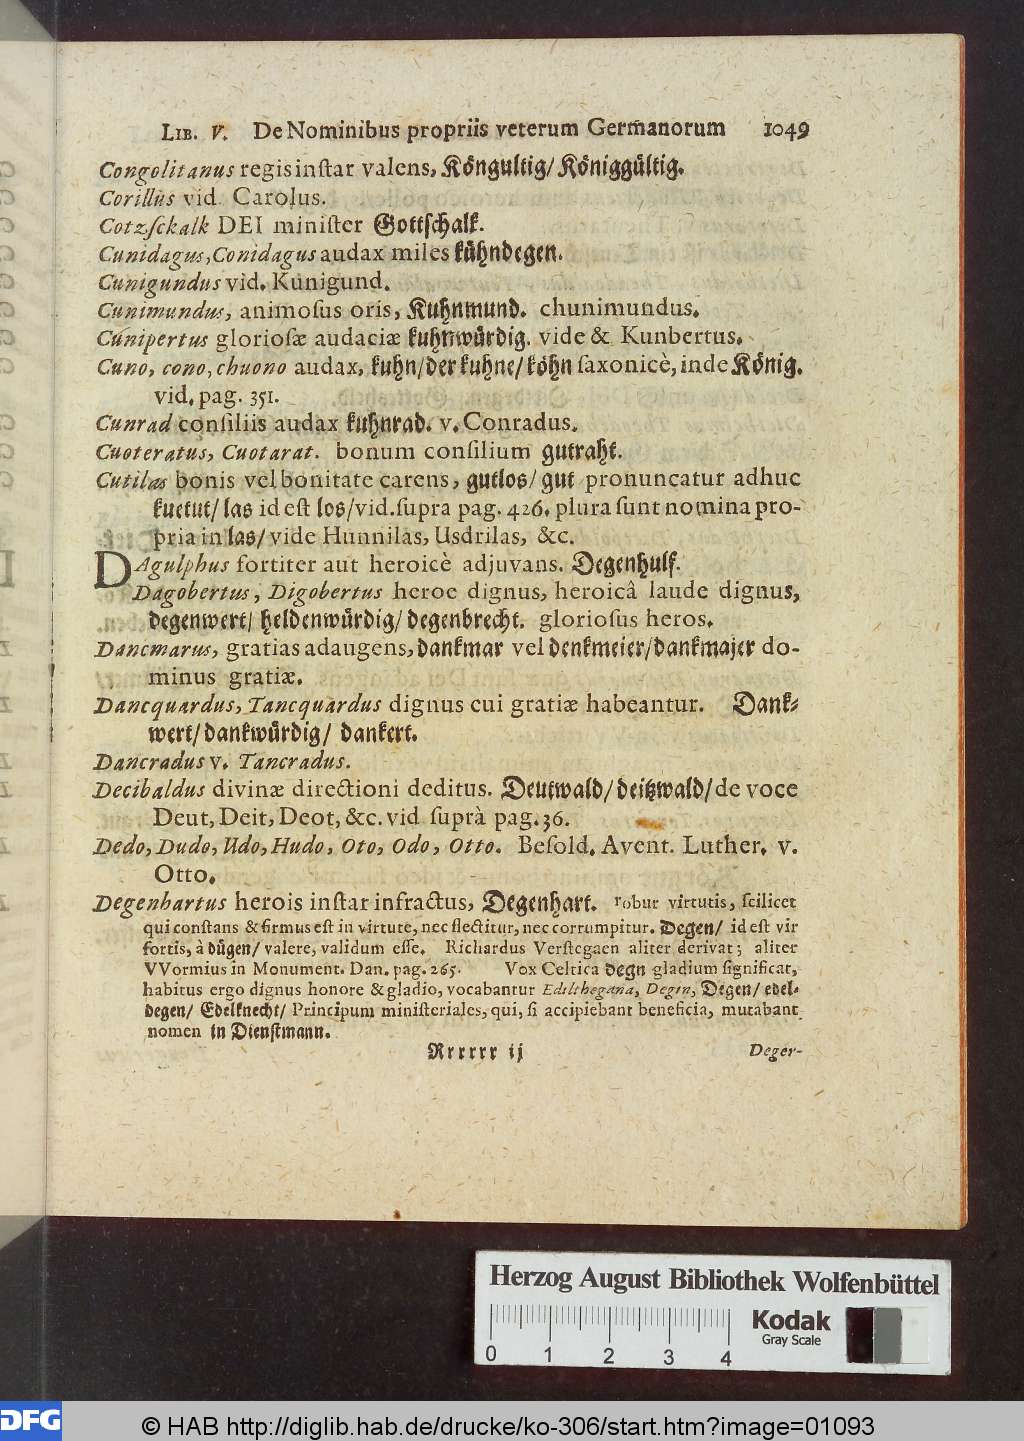 LIB. V. De Nominibus propriis veterum Germanorum 1049
Congolitanus regis instar valens, Köngultig/ Königgültig.
Corillus vid. Carolus.
Cotzschalk DEI minister Gottschalk.
Cunidagus, Conidagus audax miles kühndegen.
Cunigundus vid. Kunigund.
Cunimundus, animosus oris, Kuhnmund. chunimundus.
Cunipertus gloriosæ audaciæ kuhnwürdig. vide & Kunbertus.
Cuno, cono, chuono audax, kuhn/ der kuhne/ köhn saxonicè, inde König.
vid. pag. 351.
Cunrad consiliis audax kuhnrad. v. Conradus.
Cuoteratus, Cuotarat. bonum consilium gutraht.
Cutilas bonis vel bonitate carens, gutlos/ gut pronuncatur adhuc
kuetut/ las id est los/ vid. supra pag. 426. plura sunt nomina pro-
pria in las/ vide Hunnilas, Usdrilas, &c.
DAgulphus fortiter aut heroicè adjuvans. Degenhulf.
Dagobertus, Digobertus heroe dignus, heroicâ laude dignus,
degenwert/ heldenwürdig/ degenbrecht. gloriosus heros.
Dancmarus, gratias adaugens, dankmar vel denkmeier/ dankmajer do-
minus gratiæ.
Dancquardus, Tancquardus dignus cui gratiæ habeantur. Dank-
wert/ dankwürdig/ dankert.
Dancradus v. Tancradus.
Decibaldus divinæ directioni deditus. Deutwald/ deitzwald/ de voce
Deut, Deit, Deot, &c. vid suprà pag. 36.
Dedo, Dudo, Udo, Hudo, Oto, Odo, Otto. Besold. Avent. Luther. v.
Otto.
Degenhartus herois instar infractus, Degenhart. robur virtutis, scilicet
qui constans & firmus est in virtute, nec flectitur, nec corrumpitur. Degen/ id est vir
fortis, à dügen/ valere, validum esse. Richardus Verstegaen aliter derivat; aliter
VVormius in Monument. Dan. pag. 265. Vox Celtica degn gladium significat,
habitus ergo dignus honore & gladio, vocabantur Edilthegana, Degen, Degen/ edel-
degen/ Edelknecht/ Principum ministeriales, qui, si accipiebant beneficia, mutabant
nomen in Dienstmann.
Rrrrrr ij Deger-
Herzog August Bibliothek Wolfenbüttel
Kodak
Gray Scale
0 1 2 3 4
DFG © HAB http://diglib.hab.de/drucke/ko-306/start.htm?image=01093